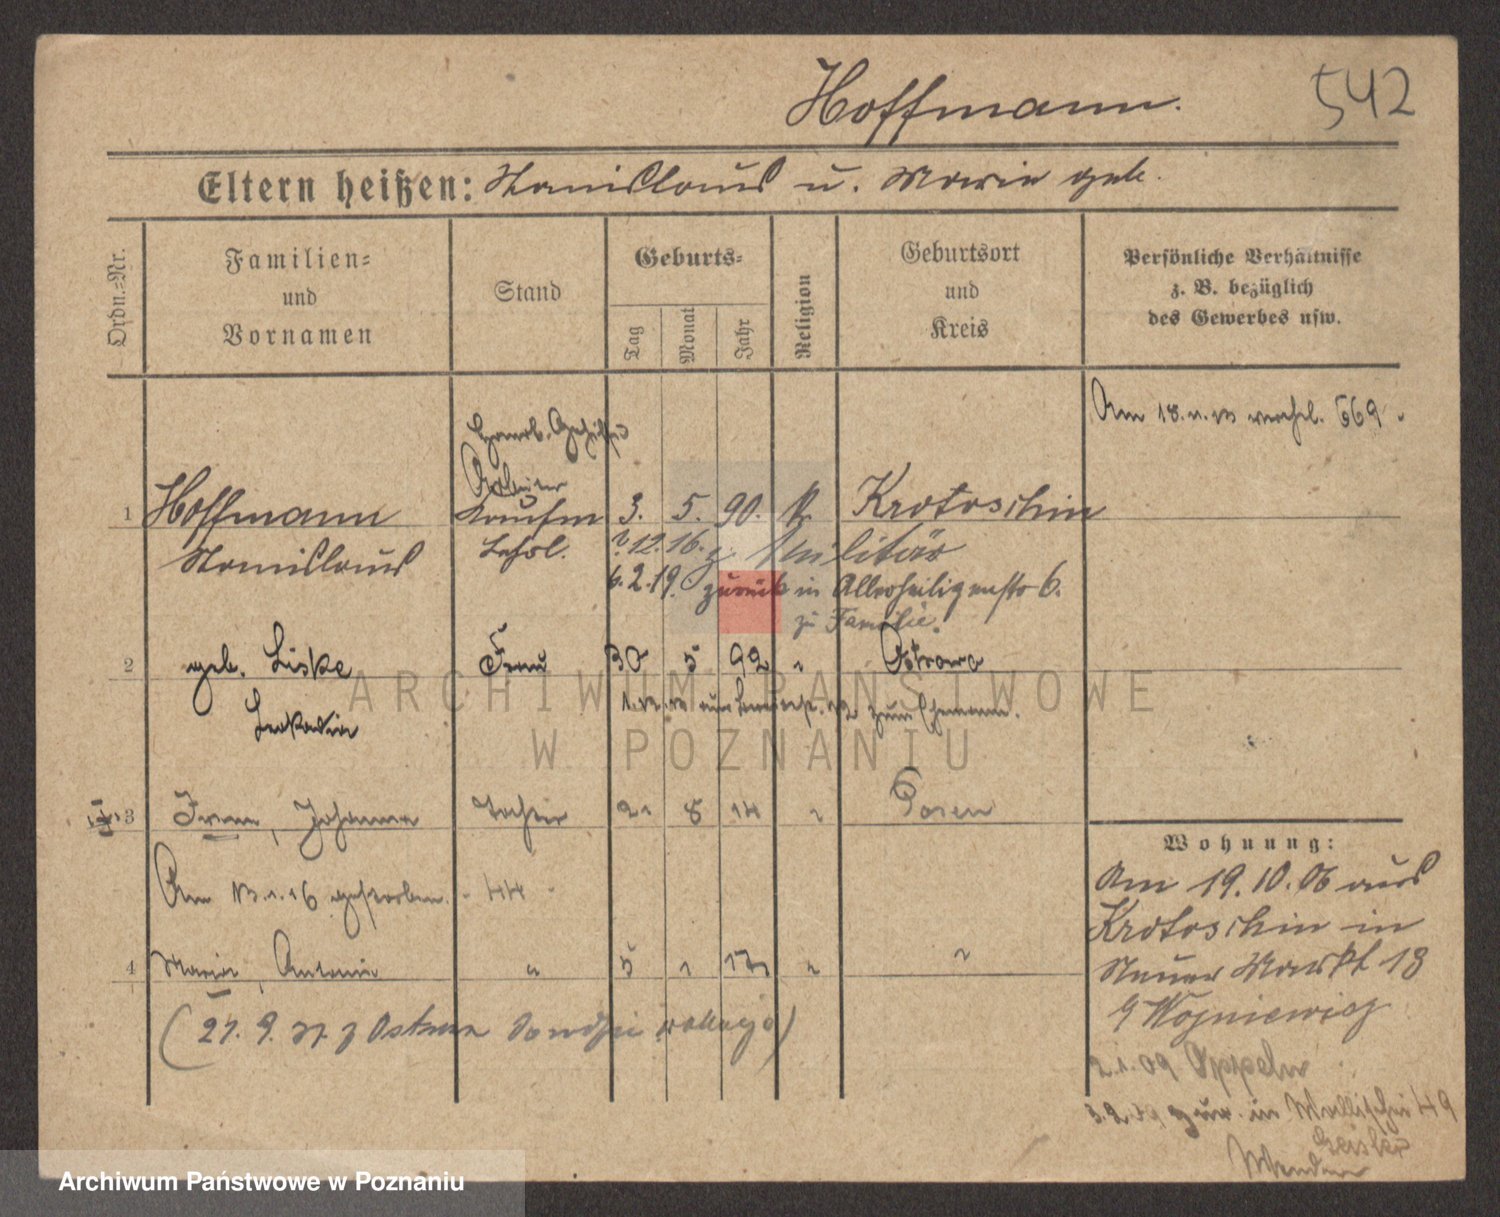 Hoffmann.
542
Eltern heißen: Stanislaus u. Marie geb.
Ordn.-Nr.
Familien-
und
Vornamen
Stand
Geburts-
Tag
Monat
Jahr
Religion
Geburtsort
und
Kreis
Persönliche Verhältnisse
z. B. bezüglich
des Gewerbes usw.
Am 18. 11. 13 verehel. 569.
Arbeiter
1 Hoffmann Kaufm 3. 5. 90. k. Krotoschin
Stanislaus Lehrl. 12. 16. z. Militär
6. 2. 19. zurück in Allerheiligenstr 6.
zu Familie.
2 geb. Liske Frau 30 5 92 " Ostrowo
Leokadia zum Ehemann.
3 Irene, Johanna Tochter 21 8 14 " Posen
Am 13. 1. 16 gestorben. - 44 -
4 Maria, Antonie " 5 1 17 " "
Wohnung:
Am 19. 10. 06 aus
Krotoschin in
Neuer Markt 13
Wozniewicz
2. 1. 09 Oppeln
zur. in Wallischei 49
Geisler
ARCHIWUM PAŃSTWOWE
W POZNANIU
Archiwum Państwowe w Poznaniu